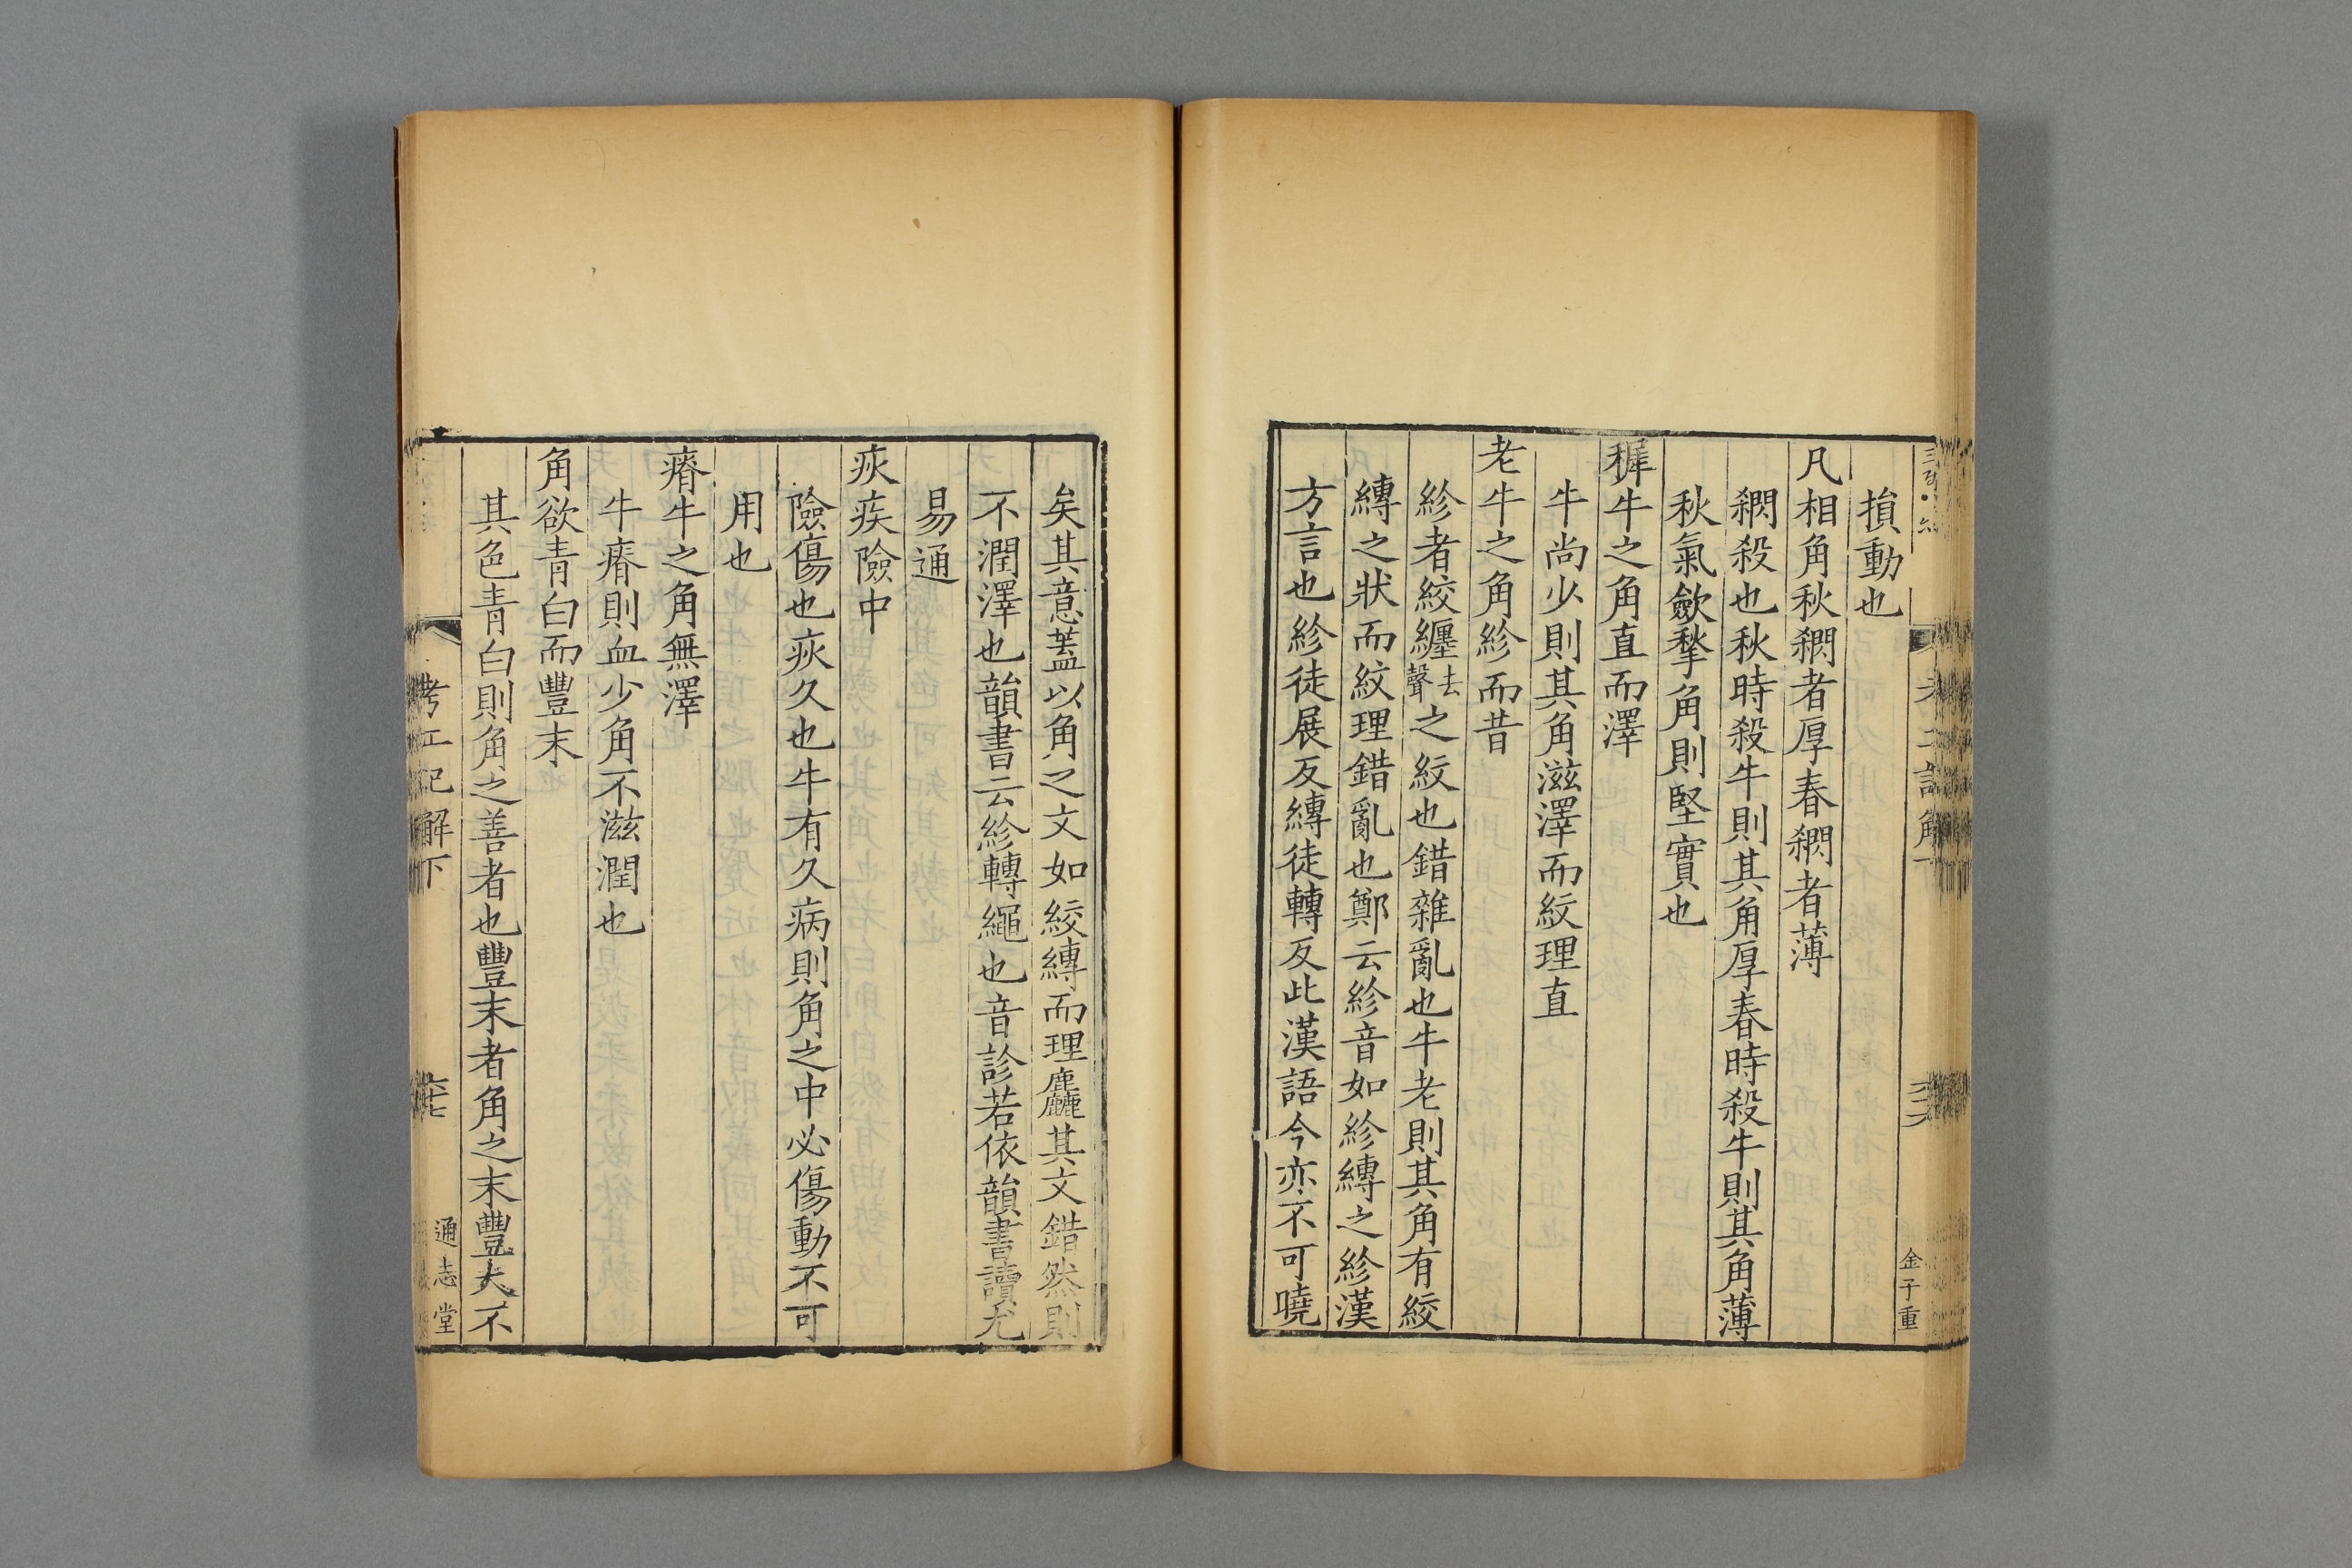 損動也
凡相角秋閷者厚春閷者薄
閷殺也秋時殺牛則其角厚春時殺牛則其角薄
秋氣歛揫角則堅實也
穉牛之角直而澤
牛尚少則其角滋澤而紋理直
老牛之角紾而昔
紾者絞纏去聲之紋也錯雜亂也牛老則其角有絞
縳之狀而紋理錯亂也鄭云紾音如紾縳之紾漢
方言也紾徒展反縳徒轉反此漢語今亦不可曉
金子重
矣其意蓋以角之文如絞縳而理麤其文錯然則
不潤澤也韻書云紾轉繩也音診若依韻書讀尤
易通
疢疾險中
險傷也疢久也牛有久病則角之中必傷動不可
用也
瘠牛之角無澤
牛瘠則血少角不滋潤也
角欲青白而豐末
其色青白則角之善者也豐末者角之末豐大不
考工記解下
通志堂